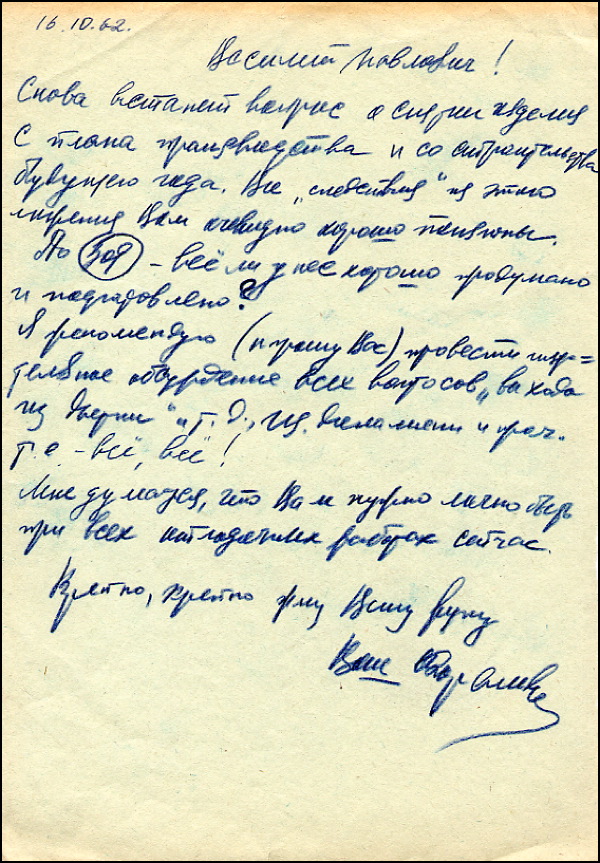 16.10.62.
Василий Павлович!
Снова встанет вопрос о снятии изделия
с плана производства и со строительства
будущего года. Все „следствия" из этого
Вам очевидно хорошо понятны.
По 309 – всё ли у нас хорошо продумано
и подготовлено?
Я рекомендую (и прошу Вас) провести тща=
тельное обсуждение всех вопросов „выхода
из двери" и т.д., из. и проч.
т.е – всё, всё!
Мне думается, что Вам нужно лично быть
при всех отладочных работах сейчас.
Крепко, крепко жму Вашу руку
Ваш СКоролев